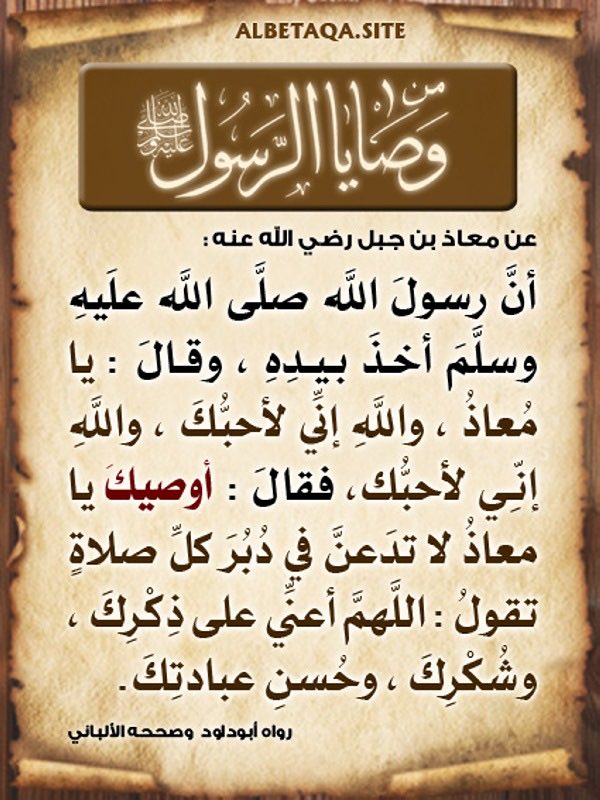 ALBETAQA.SITE
من وصايا الرسول ﷺ
عن معاذ بن جبل رضي الله عنه :
أنَّ رسولَ اللَّه صلَّى اللَّه علَيهِ
وسلَّمَ أخذَ بيدِهِ ، وقالَ : يا
مُعاذُ ، واللَّهِ إنِّي لأحبُّكَ ، واللَّهِ
إنِّي لأحبُّك، فقالَ : أوصيكَ يا
معاذُ لا تدَعنَّ في دُبُرَ كلِّ صلاةٍ
تقولُ : اللَّهمَّ أعنِّي على ذِكْرِكَ ،
وشُكْرِكَ ، وحُسنِ عبادتِكَ.
رواه أبوداود وصححه الألباني